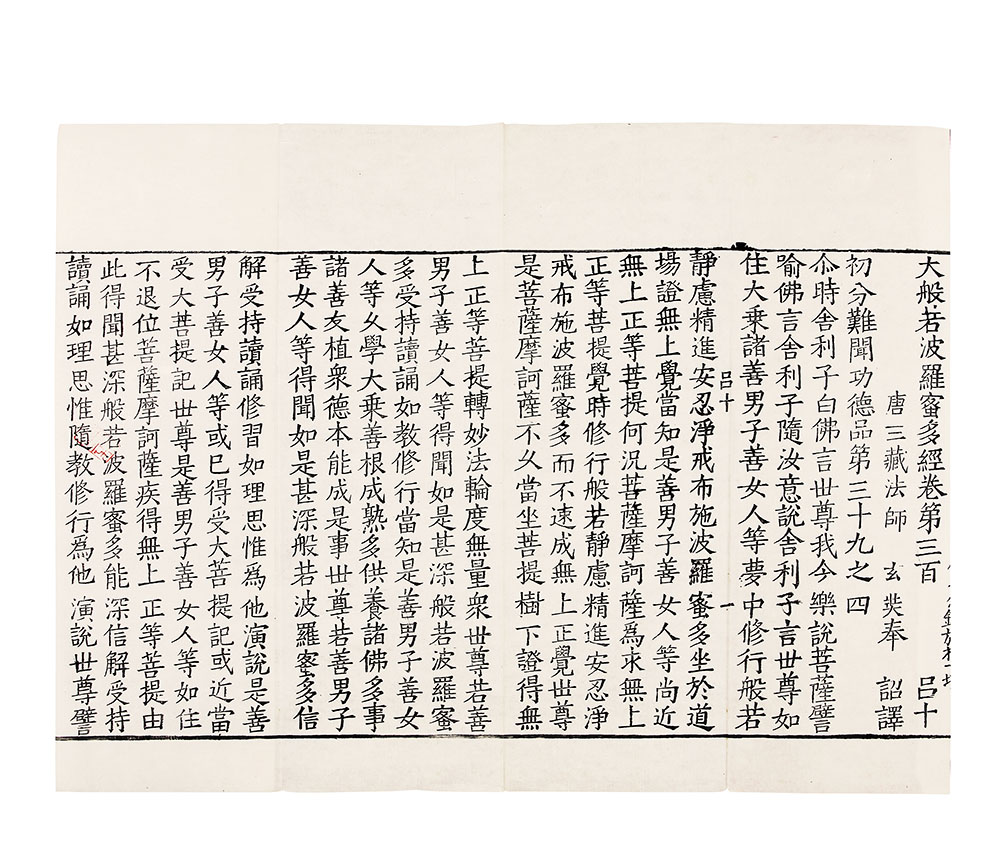 大般若波羅蜜多經卷第三百 吕十
唐三藏法師 玄奘奉 詔譯
初分難聞功德品第三十九之四
尒時舍利子白佛言世尊我今樂說菩薩譬
喻佛言舍利子隨汝意說舍利子言世尊如
住大乗諸善男子善女人等夢中修行般若
吕十 一
靜慮精進安忍淨戒布施波羅蜜多坐於道
場證無上覺當知是善男子善女人等尚近
無上正等菩提何況菩薩摩訶薩爲求無上
正等菩提覺時修行般若靜慮精進安忍淨
戒布施波羅蜜多而不速成無上正覺世尊
是菩薩摩訶薩不乆當坐菩提樹下證得無
上正等菩提轉妙法輪度無量衆世尊若善
男子善女人等得聞如是甚深般若波羅蜜
多受持讀誦如教修行當知是善男子善女
人等乆學大乗善根成熟多供養諸佛多事
諸善友植衆德本能成是事世尊若善男子
善女人等得聞如是甚深般若波羅蜜多信
解受持讀誦修習如理思惟爲他演說是善
男子善女人等或已得受大菩提記或近當
受大菩提記世尊是善男子善女人等如住
不退位菩薩摩訶薩疾得無上正等菩提由
此得聞甚深般若波羅蜜多能深信解受持
讀誦如理思惟隨教修行爲他演說世尊譬